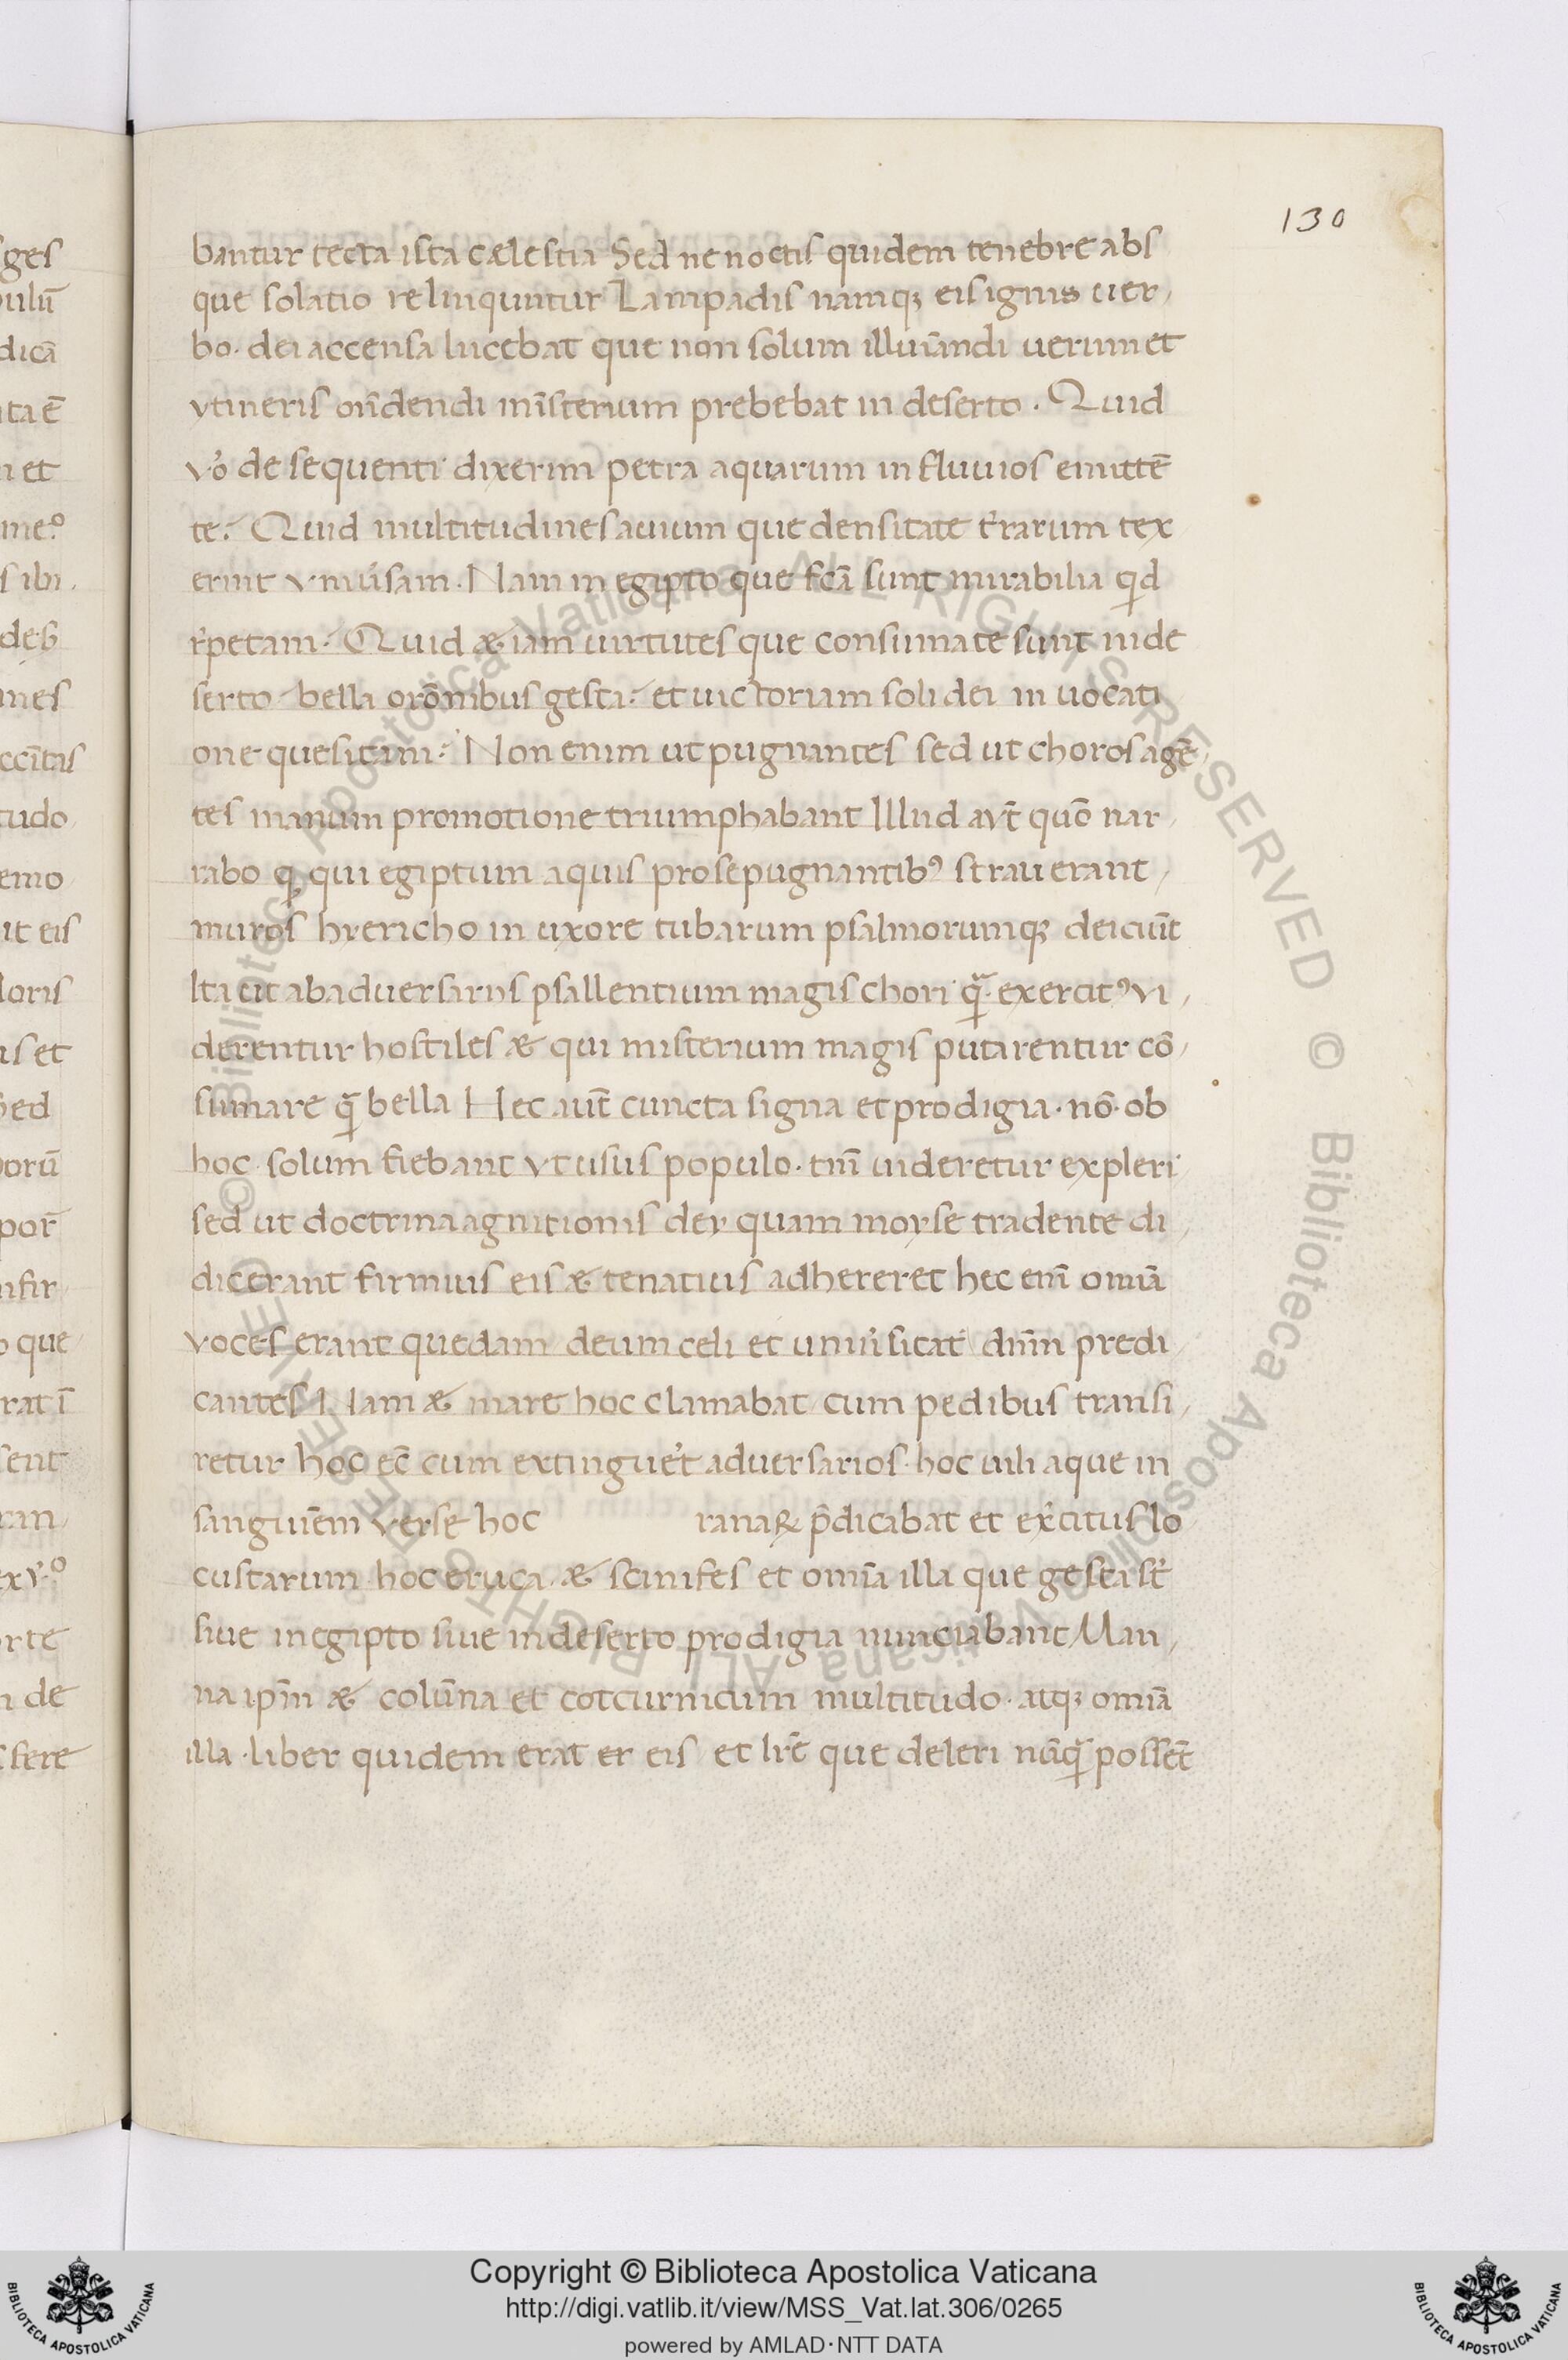 130
bantur tecta ista cælestia Sed ne noctis quidem tenebre abs
que solatio relinquntur Lampadis namq; eis ignis uer,
bo. dei accensa lucebat que non solum illuiñandi uerum et
ytineris oñdendi miñsterium prebebat in deserto. Quid
vo᷒ de sequenti dixerim petra aquarum in fluuios emittē
te? Quid multitudines auium que densitate t̓rarum tex
erint vniu̓sam. Nam in egipto que fcā sunt mirabilia qid
r̓petam? Quid & iam uirtutes que consumate sunt in de
serto bella orōnibus gesta? et uictoriam soli dei in uocati
one quesitam? Non enim ut pugnantes sed ut choros agē,
tes manum promotione triumphabant Illud aut̄ quō nar,
rabo q; qui egiptum aquis pro se pugnantibꝰ strauerant,
muros hyericho in uxore tubarum psalmorumq; deiciūt
Ita ut ab aduersariis psallentium magis chori q̄. exercitꝰ vi,
derentur hostiles & qui misterium magis putarentur cō,
sumare q̄ bella Hec aut̄ cuncta signa et prodigia. nō. ob
hoc solum fiebant vt usus populo. tm̄ uideretur expleri
sed ut doctrina agnitionis dey quam moyse tradente di,
dicerant firmius eis & tenatius adhereret hec em̄ omīa
voces erant quedam deum celi et uniu̓sicat dn̄m predi,
cantes. Nam & mare hoc clamabat cum pedibus transi,
retur hoc ec̄ cum extingue̓t aduersarios. hoc nili aque in
sanguīem verse hoc ranaꝝ p̄dicabat et ex̓citus lo
custarum hoc eruca. & scinifes et omīa illa que gesta st̄
siue in egipto siue in deserto prodigia nunciabant Man,
na ipm̄ & colūna et cotcurnicum multitudo. atq; omīa
illa. liber quidem erat er eis et lr̄e que deleri nūq̄ possēt
Copyright © Biblioteca Apostolica Vaticana
http://digi.vatlib.it/view/MSS_Vat.lat.306/0265
powered by AMLAD·NTT DATA